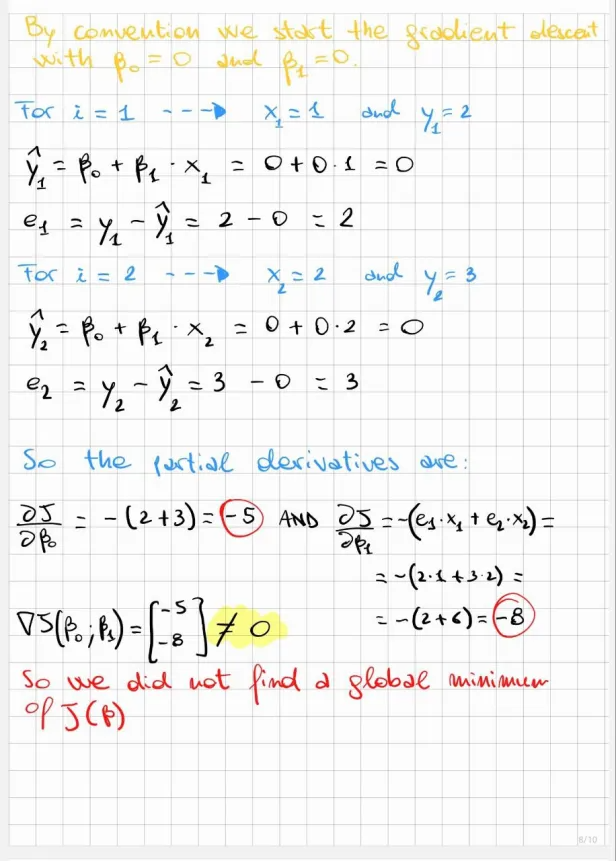 By convention we start the gradient descent
with β₀ = 0 and β₁ = 0.
For i = 1 ----> x₁ = 1 and y₁ = 2
ŷ₁ = β₀ + β₁ · x₁ = 0 + 0 · 1 = 0
e₁ = y₁ - ŷ₁ = 2 - 0 = 2
For i = 2 ----> x₂ = 2 and y₂ = 3
ŷ₂ = β₀ + β₁ · x₂ = 0 + 0 · 2 = 0
e₂ = y₂ - ŷ₂ = 3 - 0 = 3
So the partial derivatives are:
∂J/∂β₀ = -(2+3) = -5 AND ∂J/∂β₁ = -(e₁ · x₁ + e₂ · x₂) =
= -(2·1 + 3·2) =
= -(2+6) = -8
∇J(β₀; β₁) = [-5 -8] ≠ 0
So we did not find a global minimum
of J(β)
8/10